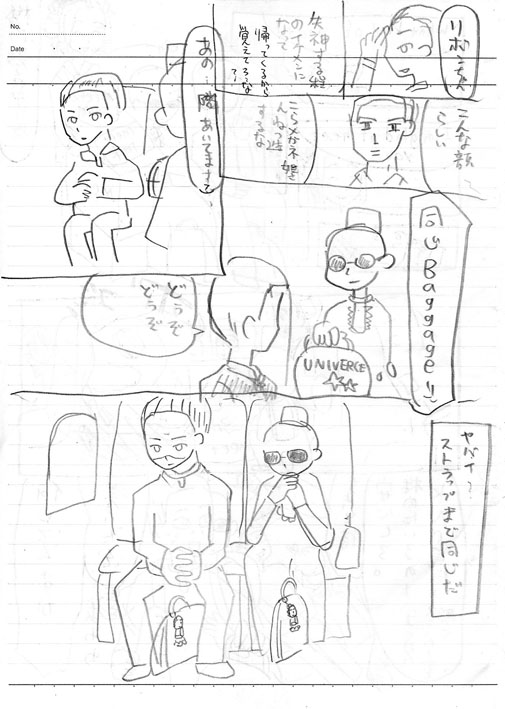 No.
Date
リボンちゃん
失神する程
のイケメンに
なって
帰ってくるから
覚えてろっな
?!
こんな顔
らしい
こらメガネ
するな
あの… 隣 あいてますさて
同じBaggageり
UNIVERCE
どうぞ
どうぞ
ヤバイ〜
ストラップまで同じだ